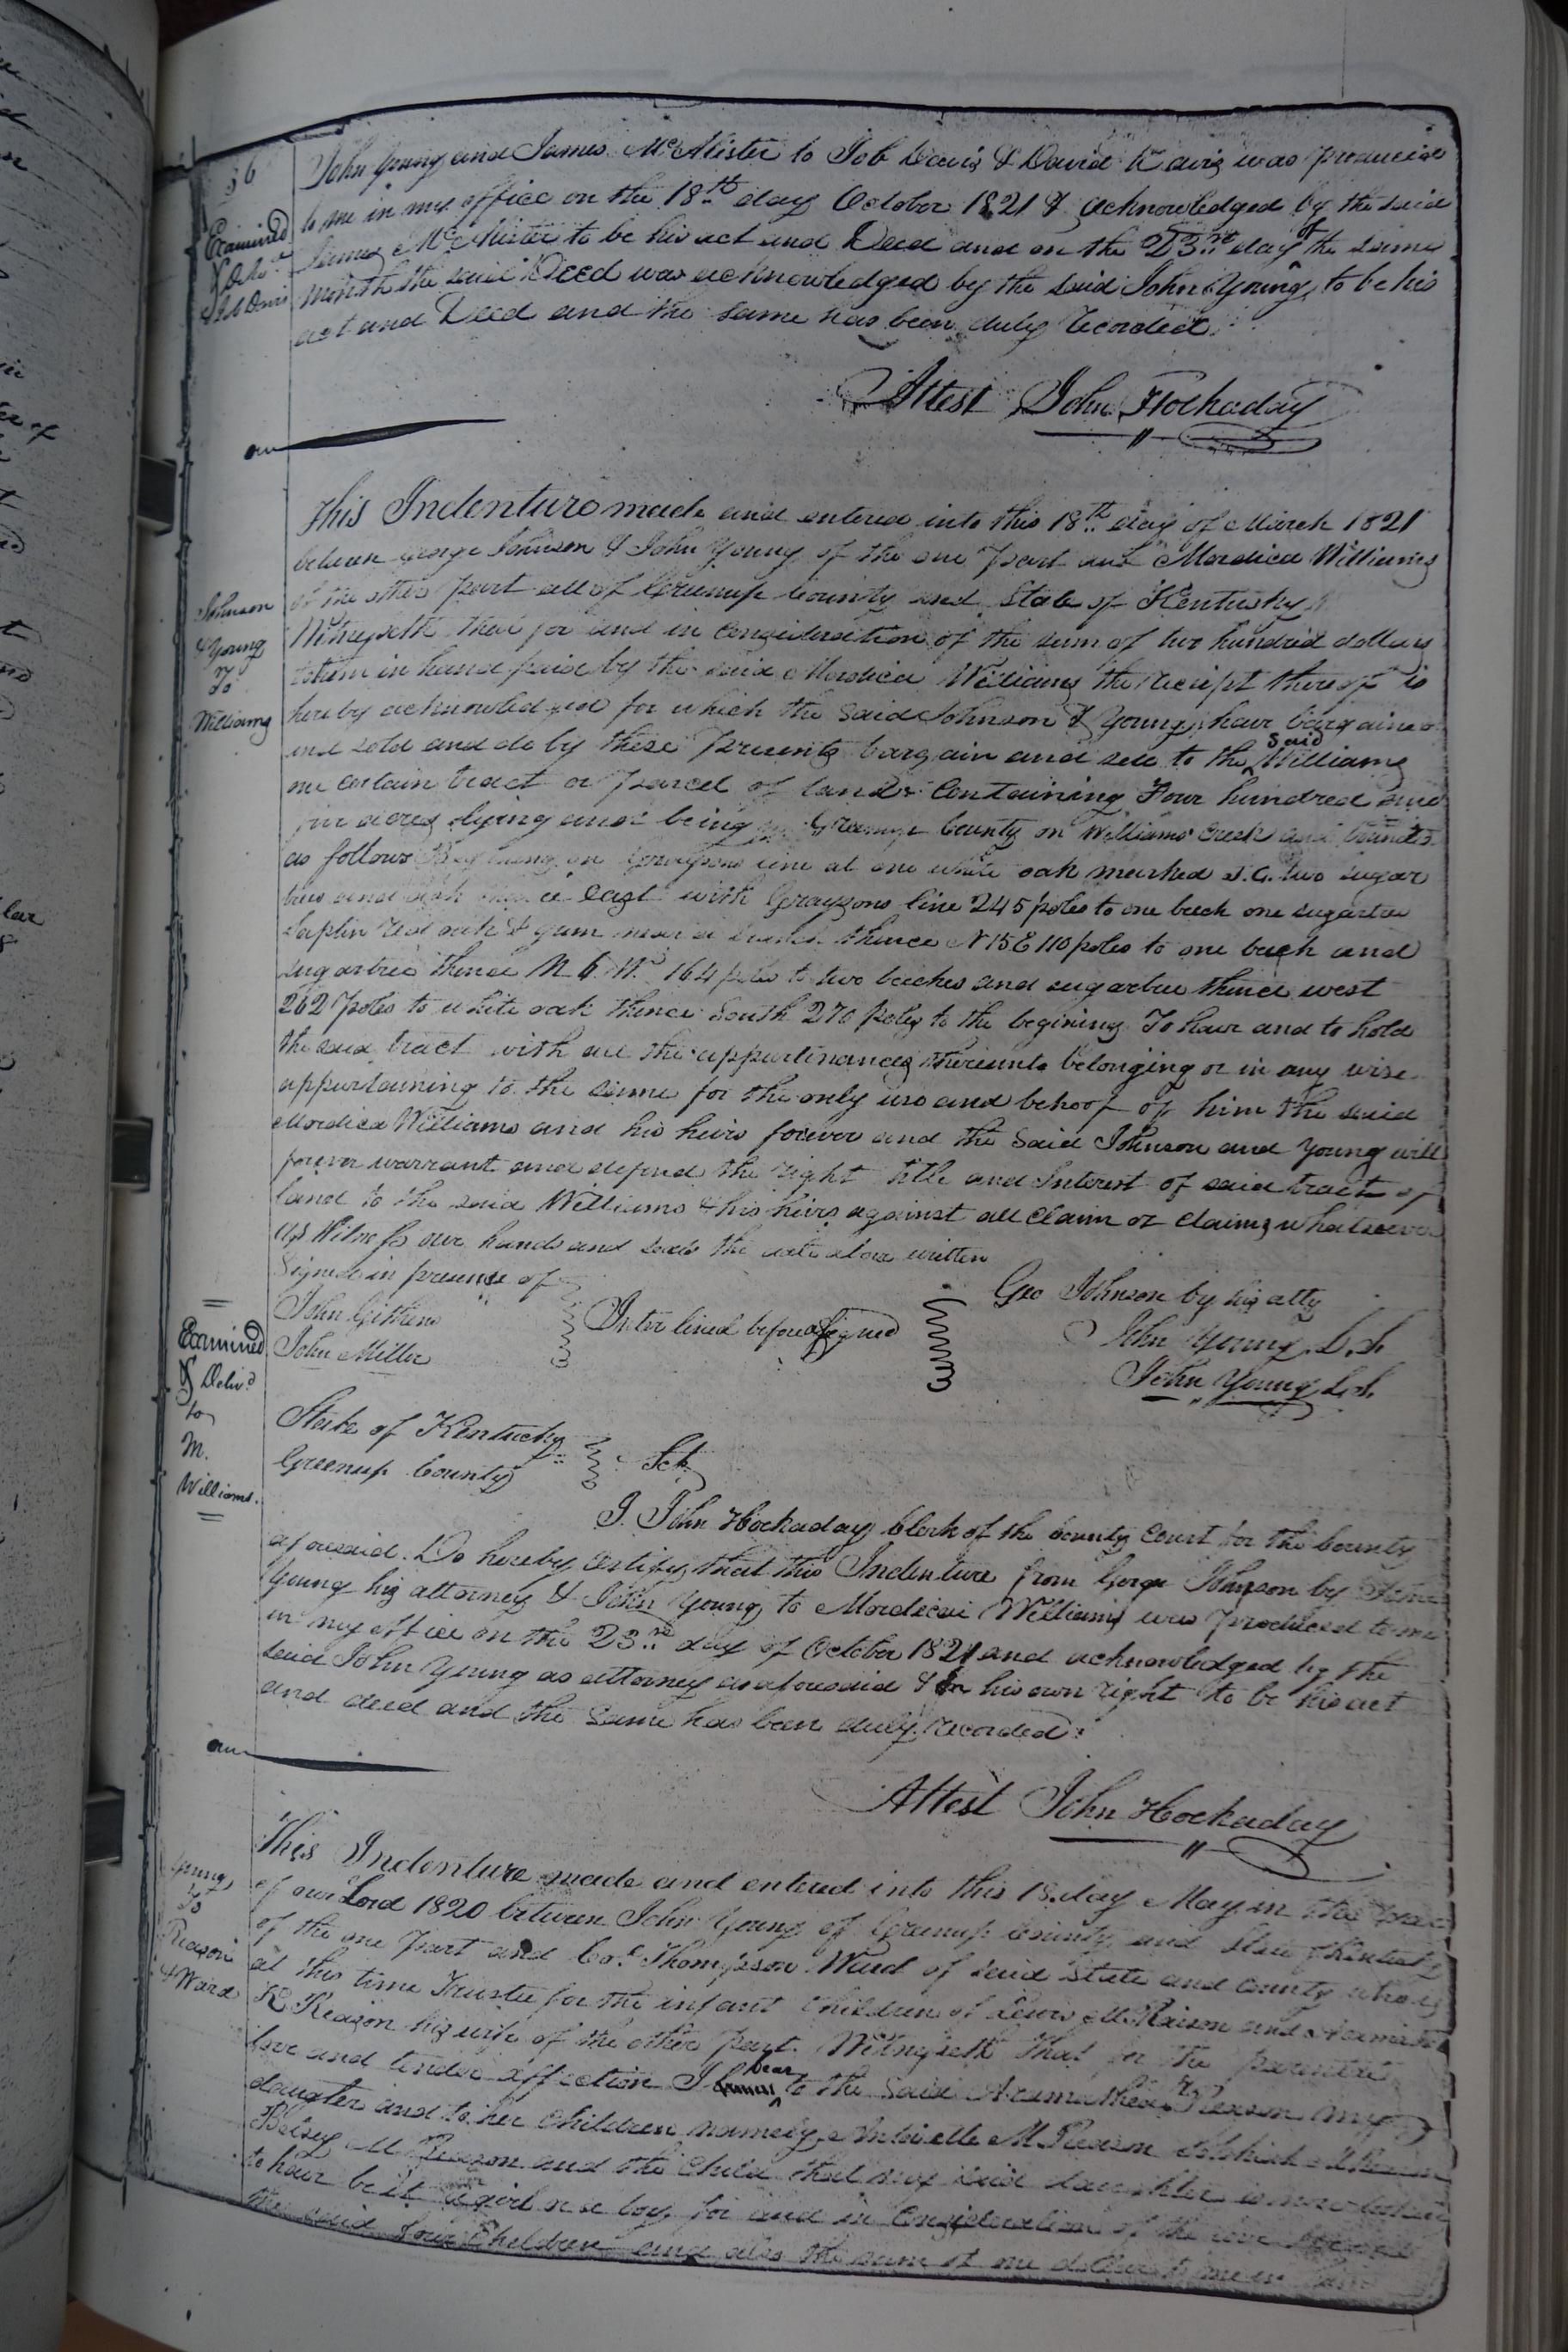 36
John Young and James McAlister to Job Davis & David Davis was produced
Examined
to me in my office on the 18th day October 1821 & acknowledged by the said
James McAlister to be his act and Deed and on the 23rd day of the same
month the said Deed was acknowledged by the said John Young, to be his
act and Deed and the same has been duly recorded.
Attest John Hockaday
This Indenture made and entered into this 18th day of March 1821
between George Johnson & John Young of the one part and Mordica Williams
of the other part all of Greenup County and State of Kentucky
Johnson
& Young
To
Williams
Witnesseth that for and in consideration of the sum of two hundred dollars
to them in hand paid by the said Mordica Williams the receipt thereof is
hereby acknowledged for which the said Johnson & Young, have bargained
and sold and do by these presents bargain and sell to the said Williams
one certain tract or parcel of land Containing Four hundred and
five acres lying and being in Greenup County on Williams Creek and bounded
as follows Begining on Graysons line at one white oak marked I.G. two sugar
trees and thence East with Graysons line 245 poles to one beech one sugartree
Saplin red oak & gum near a thence N 15 E 110 poles to one beech and
sugartree thence N 6 W 164 poles to two beeches and sugartree thence west
262 poles to white oak thence South 270 poles to the begining To have and to hold
the said tract with all the appurtinances thereunto belonging or in any wise
appurtaining to the same for the only use and behoof of him the said
Mordica Williams and his heirs forever and the said Johnson and Young will
forever warrant and defend the right title and Interest of said tract of
land to the said Williams & his heirs against all Claim or Claims whatsoever
As Witness our hands and seals the date above written
Signed in presence of
John Gibbens
John Miller
Inter lined before Signed
Geo Johnson by his atty
John Young L.S.
John Young L.S.
Examined
& Deliv.d
to
M.
Williams.
State of Kentucky
Greenup County
Sct
I. John Hockaday Clerk of the County Court for the County
aforesaid. Do hereby certify that this Indenture from George Johnson by John
Young his attorney & John Young to Mordicai Williams was produced to me
in my office on the 23rd day of October 1821 and acknowledged by the
said John Young as attorney as aforesaid & in his own right to be his act
and deed and the same has been duly recorded:
Attest John Hockaday
This Indenture made and entered into this 18 day May in the Year
of our Lord 1820 between John Young of Greenup County and State of Kentucky
Young
To
Reason
& Ward
of the one part and Col Thompson Ward of said State and County who is
at this time Trustee for the infant Children of Lewis M Raison and
K Reason his wife of the other part. Witnesseth that for the parental
love and tender affection I bear to the said Reason my
daughter and to her Children namely M Reason
Betsey M Reason and the Child that my said daughter is now
to have be it a girl or a boy, for and in Consideration of the love
the said four Children and also the sum of one dollar to me in